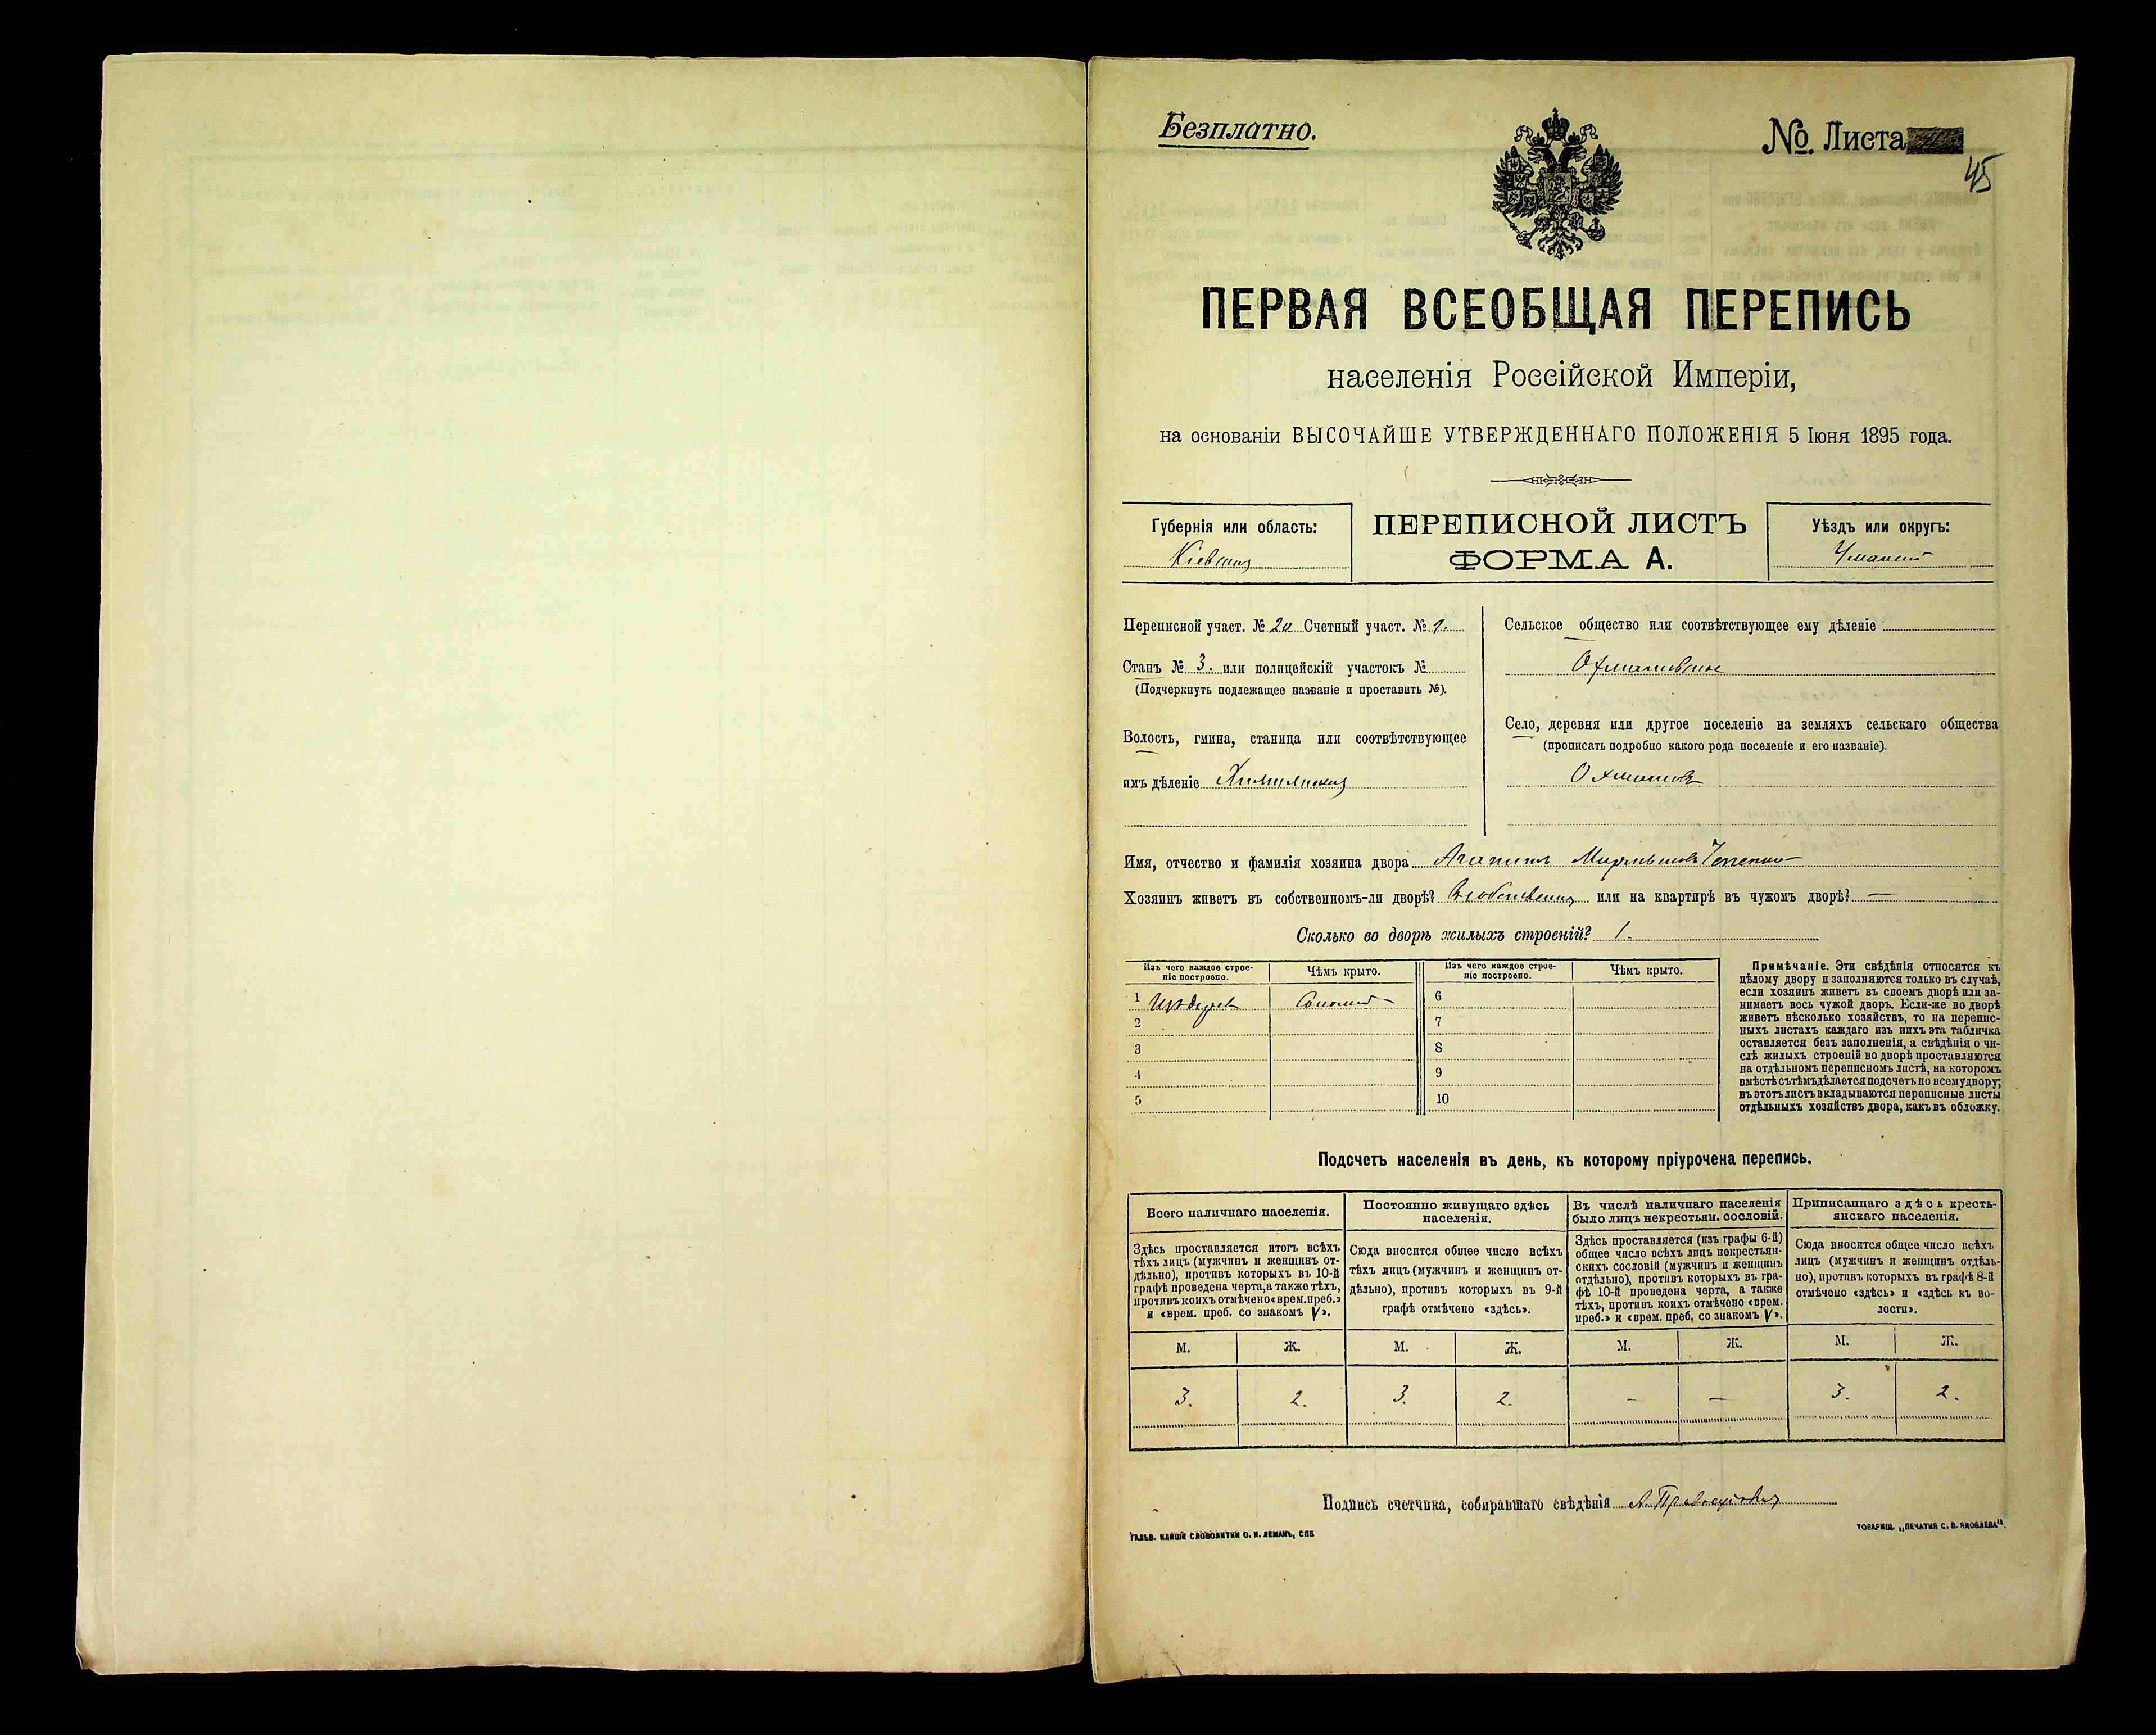 Безплатно.
№. Листа
45
ПЕРВАЯ ВСЕОБЩАЯ ПЕРЕПИСЬ
населенія Россійской Имперіи,
на основаніи ВЫСОЧАЙШЕ УТВЕРЖДЕННАГО ПОЛОЖЕНІЯ 5 Іюня 1895 года.
Губернія или область:
Кіевская
ПЕРЕПИСНОЙ ЛИСТЪ
ФОРМА А.
Уѣздъ или округъ:
Уманскій
Переписной участ. № 20 Счетный участ. № 1.
Станъ № 3. или полицейскій участокъ №
(Подчеркнуть подлежащее названіе и проставить №).
Волость, гмина, станица или соотвѣтствующее
имъ дѣленіе
Сельское общество или соотвѣтствующее ему дѣленіе
Охматовское
Село, деревня или другое поселеніе на земляхъ сельскаго общества
(прописать подробно какого рода поселеніе и его названіе).
Охматовъ
Имя, отчество и фамилія хозяина двора
Хозяинъ живетъ въ собственномъ-ли дворѣ? или на квартирѣ въ чужомъ дворѣ? —
Сколько во дворѣ жилыхъ строеній? 1.
Изъ чего каждое строе-
ніе построено.
Чѣмъ крыто.
1 Изъ дерев Солом
2
3
4
5
Изъ чего каждое строе-
ніе построено.
Чѣмъ крыто.
6
7
8
9
10
Примѣчаніе. Эти свѣдѣнія относятся къ
цѣлому двору и заполняются только въ случаѣ,
если хозяинъ живетъ въ своемъ дворѣ или за-
нимаетъ весь чужой дворъ. Если-же во дворѣ
живетъ нѣсколько хозяйствъ, то на перепис-
ныхъ листахъ каждаго изъ нихъ эта табличка
оставляется безъ заполненія, а свѣдѣнія о чи-
слѣ жилыхъ строеній во дворѣ проставляются
на отдѣльномъ переписномъ листѣ, на которомъ
вмѣстѣ съ тѣмъ дѣлается подсчетъ по всему двору;
въ этотъ листъ вкладываются переписные листы
отдѣльныхъ хозяйствъ двора, какъ въ обложку.
Подсчетъ населенія въ день, къ которому пріурочена перепись.
Всего наличнаго населенія.
Здѣсь проставляется итогъ всѣхъ
тѣхъ лицъ (мужчинъ и женщинъ от-
дѣльно), противъ которыхъ въ 10-й
графѣ проведена черта, а также тѣхъ,
противъ коихъ отмѣчено «врем. преб.»
и «врем. преб. со знакомъ V».
М. Ж.
3. 2.
Постоянно живущаго здѣсь
населенія.
Сюда вносится общее число всѣхъ
тѣхъ лицъ (мужчинъ и женщинъ от-
дѣльно), противъ которыхъ въ 9-й
графѣ отмѣчено «здѣсь».
М. Ж.
3. 2.
Въ числѣ наличнаго населенія
было лицъ некрестьян. сословій.
Здѣсь проставляется (изъ графы 6-й)
общее число всѣхъ лицъ некрестьян-
скихъ сословій (мужчинъ и женщинъ
отдѣльно), противъ которыхъ въ гра-
фѣ 10-й проведена черта, а также
тѣхъ, противъ коихъ отмѣчено «врем.
преб.» и «врем. преб. со знакомъ V».
М. Ж.
— —
Приписаннаго здѣсь кресть-
янскаго населенія.
Сюда вносится общее число всѣхъ
лицъ (мужчинъ и женщинъ отдѣль-
но), противъ которыхъ въ графѣ 8-й
отмѣчено «здѣсь» и «здѣсь къ во-
лости».
М. Ж.
3. 2.
Подпись счетчика, собиравшаго свѣдѣнія
ГАЛЬВ. КЛИШЕ СЛОВОЛИТНИ О. И. ЛЕМАНЪ, СПБ
ТОВАРИЩ. „ПЕЧАТНЯ С. П. ЯКОВЛЕВА".